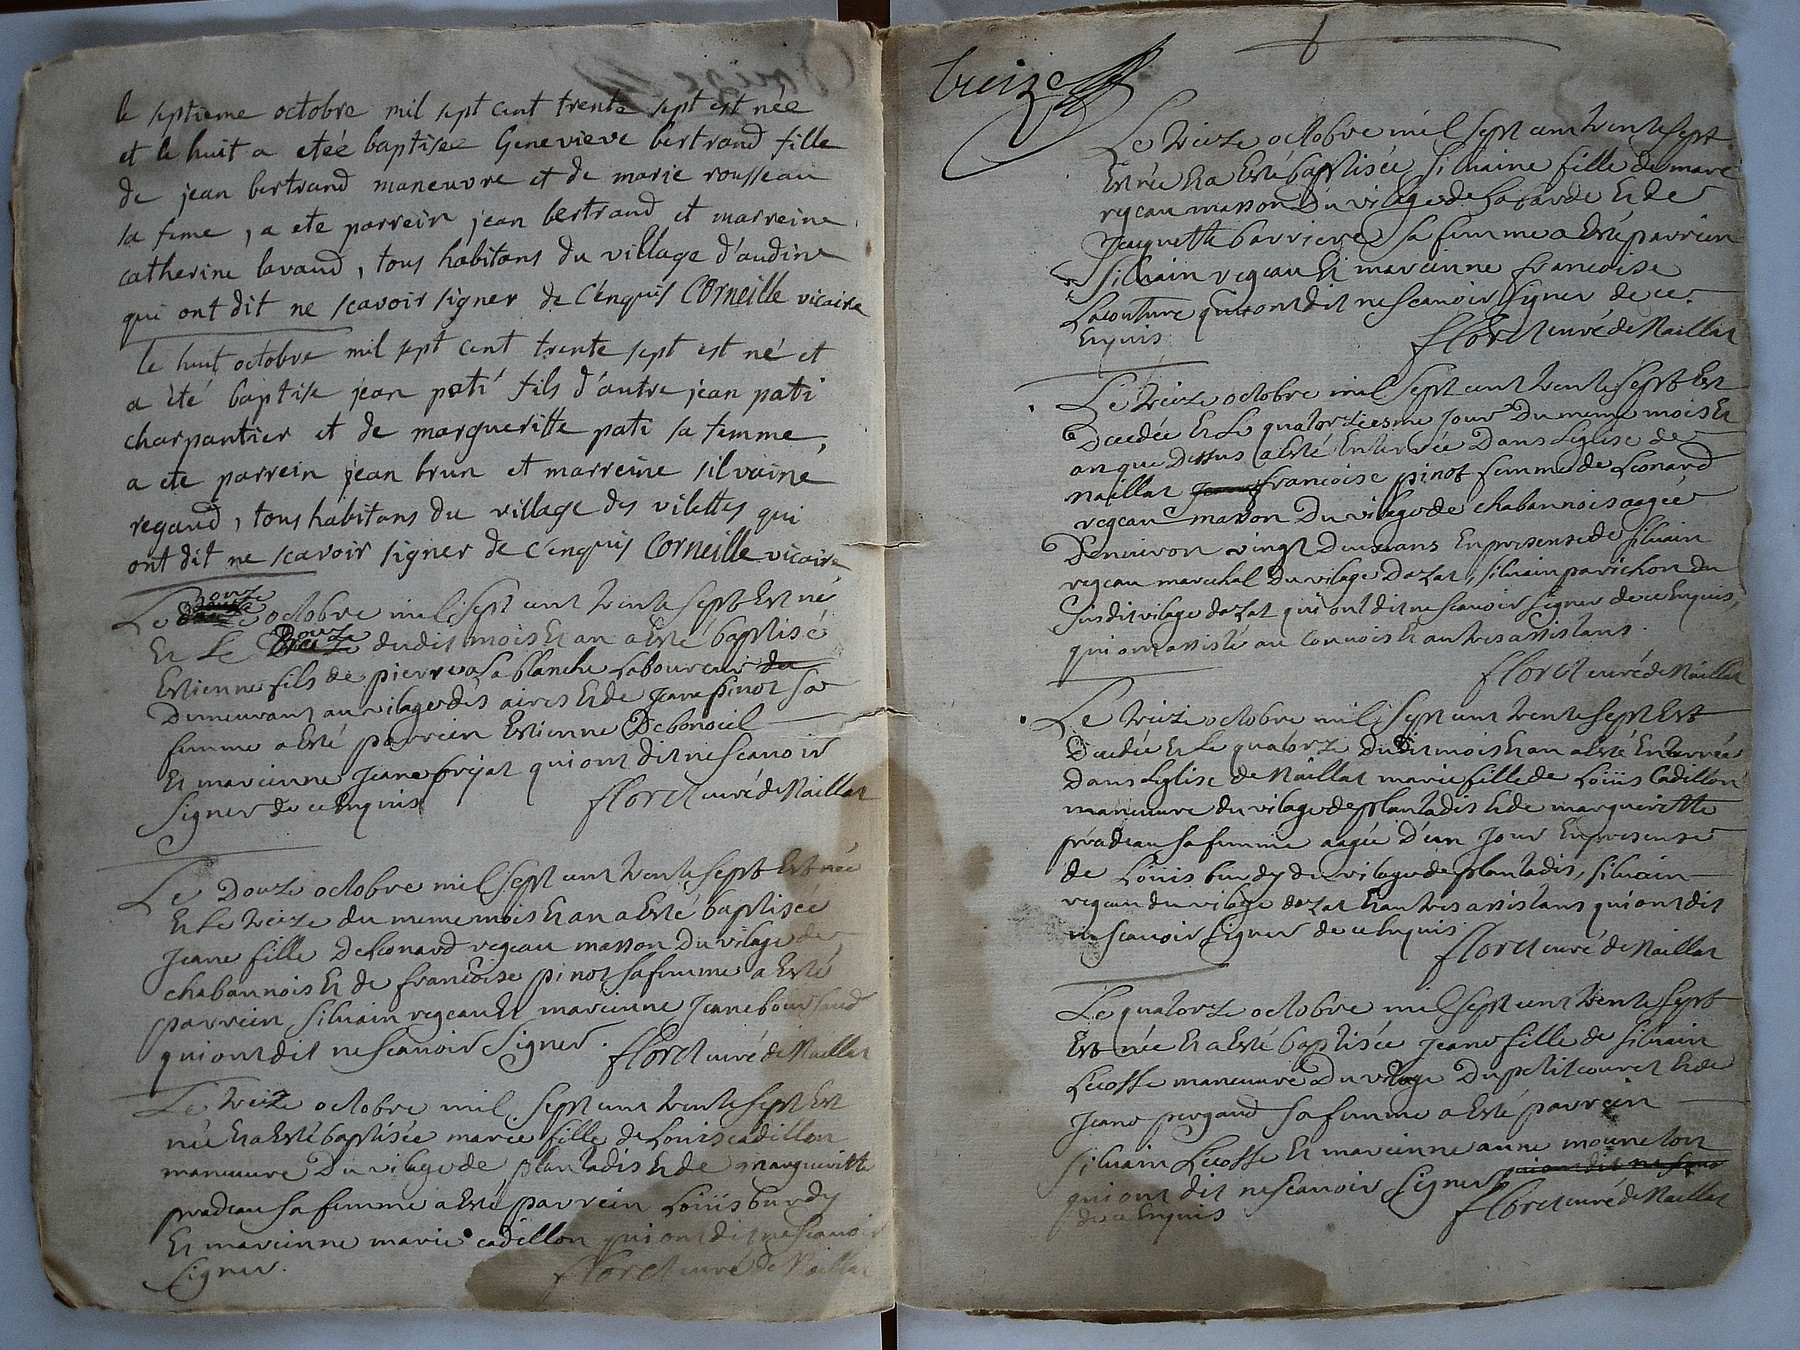 le septieme octobre mil sept cent trente sept est née
et le huit a eteé baptisee Genevieve bertrand fille
de jean bertrand maneuvre et de marie rousseau
sa feme, a ete parrein jean bertrand et marreine
catherine lavaud, tous habitans du village d'audine
qui ont dit ne scavoir signer de c'enquis Corneille vicaire
le huit octobre mil sept cent trente sept est né et
a été baptise jean pati fils d'autre jean pati
charpantier et de margueritte pati sa femme,
a ete parrein jean brun et marreine silvaine
regaud, tous habitans du village des vilettes qui
ont dit ne scavoir signer de c'enquis Corneille vicaire
Le onze octobre mil sept cent trente sept Est né
Et Le Douze dudit mois Et an a Esté baptisé
Estienne fils de pierre La blanche Laboureur du
Demeurant au vilage des aires Et de Jeane pinot sa
femme a Esté parrein Estienne Debonoeil
Et mareinne Jeane qui ont dit ne scavoir
signer de ce Enquis floret curé de Naillat
Le Douze octobre mil sept cent trente sept Est née
Et Le treize du meme mois Et an a Esté baptisée
Jeane fille De Leonard regeau masson Du vilage de
chabannois Et de francoise pinot sa femme a Esté
parrein silvain regeau Et mareinne Jeane
qui ont dit ne scavoir signer. floret curé de Naillat
Le treize octobre mil sept cent trente sept Est
née Et a Esté baptisée marie fille de Louis cadillon
maneuvre Du vilage de plantadis Et de margueritte
pradeau sa femme a Esté parrein Loüis burdy
Et mareinne marie cadillon qui ont dit ne scavoir
signer. floret curé de Naillat
treize
Le treize octobre mil sept cent trente sept
Est née Et a Esté baptisée silvaine fille de marc
regeau masson Du vilage de La Et de
Jacquette barriere sa femme a Esté parrein
silvain regeau Et mareinne francoise
Lacouture qui ont dit ne scavoir signer de ce
Enquis floret curé de Naillat
Le treize octobre mil sept cent trente sept Est
Decedée Et Le quatorziesme Jour Du meme mois Et
an que Dessus a Esté Enterrée Dans Leglise de
Naillat francoise pinot femme de Leonard
regeau masson Du vilage de chabannois aagée
Denviron vingt Deux ans En presense de silvain
regeau marechal Du vilage Dazat, silvain parichon du
susdit vilage dazat qui ont dit ne scavoir signer de ce Enquis,
qui ont assisté au convois Et autres assistans.
floret curé de Naillat
Le treize octobre mil sept cent trente sept Est
Decedée Et Le quatorze Dudit mois Et an a Esté Enterrée
Dans Leglise de Naillat marie fille de Loüis Cadillon
maneuvre du vilage de plantadis Et de margueritte
pradeau sa femme aagée D'un Jour En presense
de Loüis burdy du vilage de plantadis, silvain
regeau du vilage dazat Et autres assistans qui ont dit
ne scavoir signer de ce Enquis floret curé de Naillat
Le quatorze octobre mil sept cent trente sept
Est née Et a Esté baptisée Jeane fille de silvain
Lecosse maneuvre Du vilage Du petit couret Et de
Jeane peygaud sa femme a Esté parrein
silvain Lecosse Et mareinne anne mouneton
qui ont dit ne scav
qui ont dit ne scavoir signer floret curé de Naillat
de ce Enquis